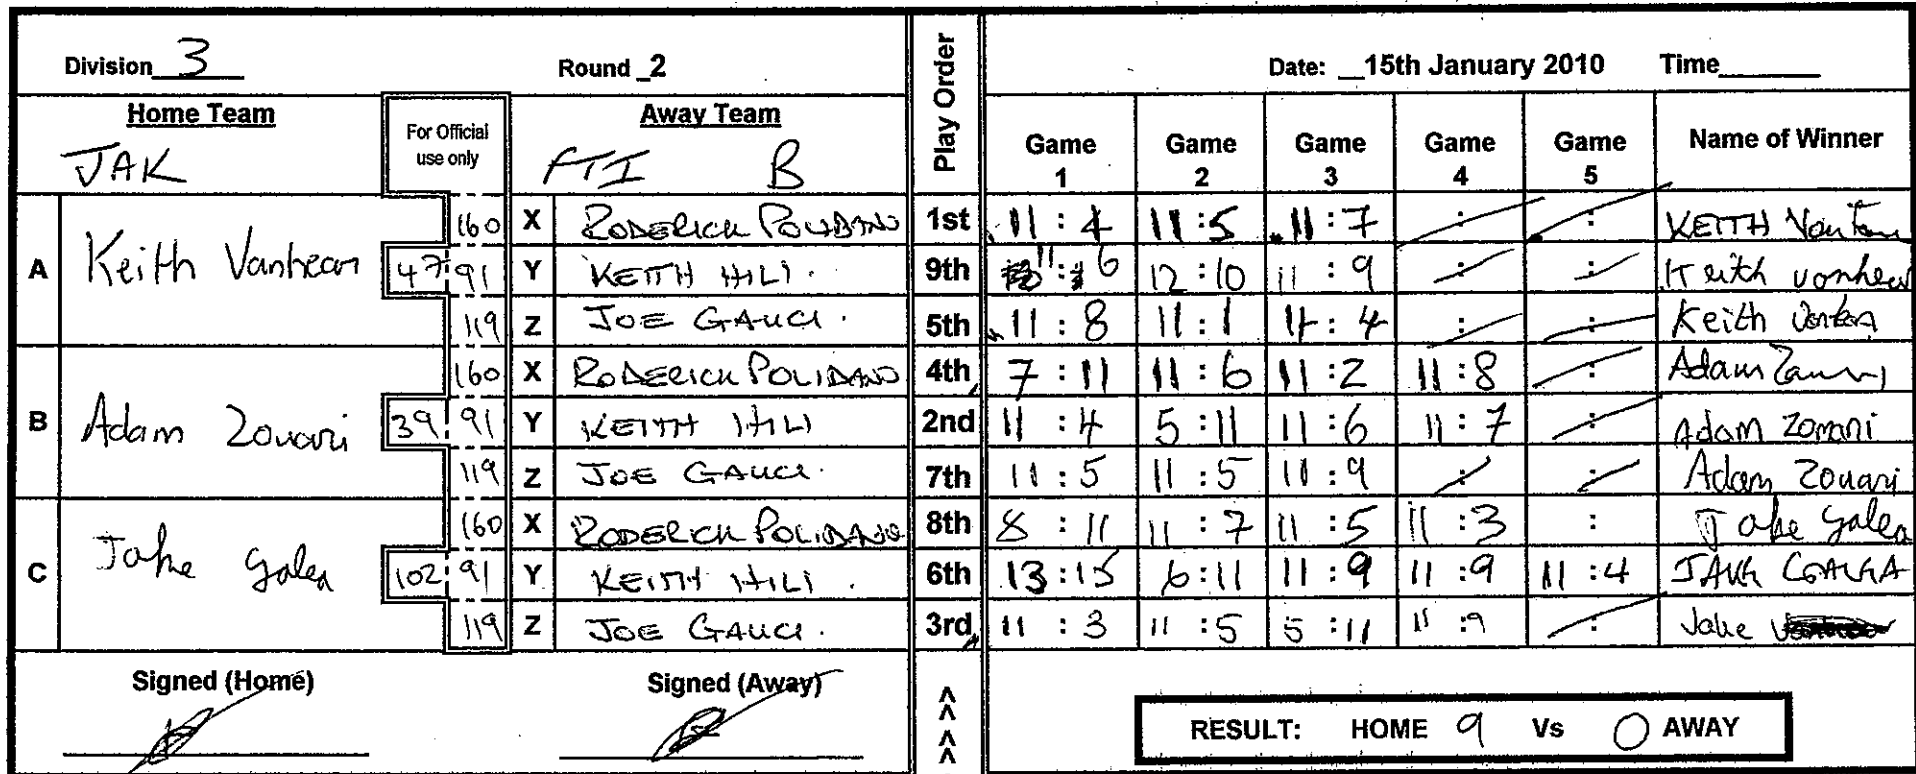 Division 3 Round 2 Date: 15th January 2010 Time
Home Team For Official use only Away Team Play Order Game 1 Game 2 Game 3 Game 4 Game 5 Name of Winner
JAK FTI B
A Keith Vanhear 47
160 X RODERICK POLIDANO 1st 11 : 4 11 : 5 11 : 7 : : KEITH
91 Y KEITH HILI. 9th 11 : 6 12 : 10 11 : 9 : : Keith vanhear
119 Z JOE GAUCI. 5th 11 : 8 11 : 1 11 : 4 : : Keith
B Adam Zouari 39
160 X RODERICK POLIDANO 4th 7 : 11 11 : 6 11 : 2 11 : 8 : Adam
91 Y KEITH HILI 2nd 11 : 4 5 : 11 11 : 6 11 : 7 : Adam Zouari
119 Z JOE GAUCI. 7th 11 : 5 11 : 5 11 : 9 : : Adam Zouari
C Jake Galea 102
160 X RODERICK POLIDANO 8th 8 : 11 11 : 7 11 : 5 11 : 3 : Jake Galea
91 Y KEITH HILI. 6th 13 : 15 6 : 11 11 : 9 11 : 9 11 : 4 JAKE GALEA
119 Z JOE GAUCI. 3rd 11 : 3 11 : 5 5 : 11 11 : 9 : Jake
Signed (Home) Signed (Away) < < < <
RESULT: HOME 9 Vs 0 AWAY